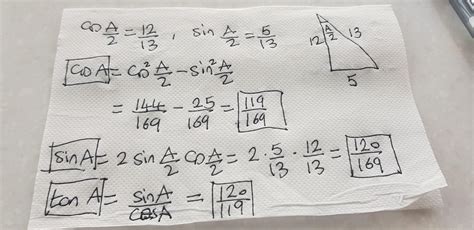 co A/2 = 12/13 , sin A/2 = 5/13
12 A/2 13
5
co A = co² A/2 - sin² A/2
= 144/169 - 25/169 = 119/169
sin A = 2 sin A/2 co A/2 = 2 · 5/13 · 12/13 = 120/169
tan A = sin A/cos A = 120/119